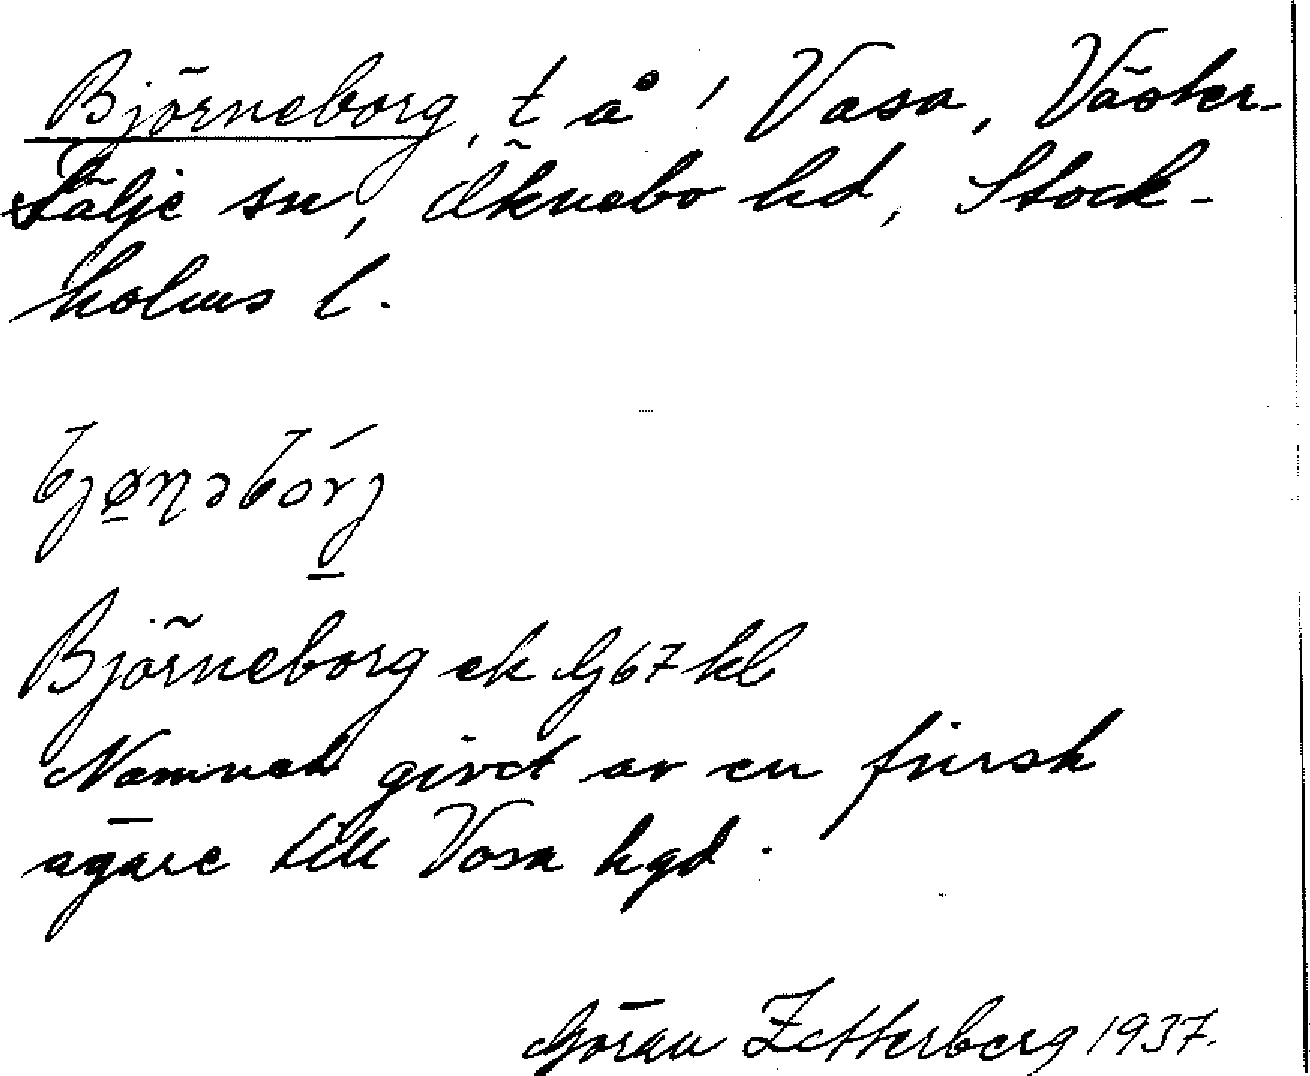 Björneborg, t å ! Vasa, Väster-
tälje sn, Öknebo hd, Stock-
holms l.
bjø̱ŋəbórj
Björneborg ek G67 kb
Namnet givet av en finsk
ägare till Vasa hgd.
Göran Zetterberg 1937.